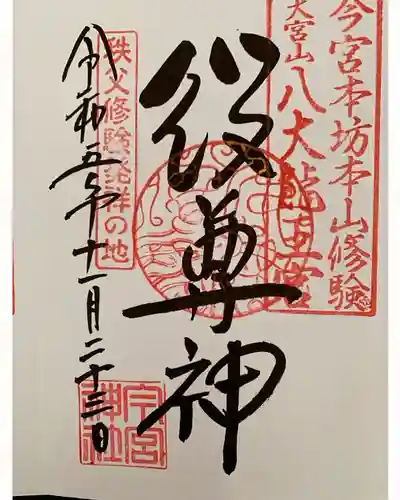 今宮本坊本山修験
大宮山八大龍王宮
役尊神
秩父修験発祥の地
令和五年十一月二十三日
今宮神社